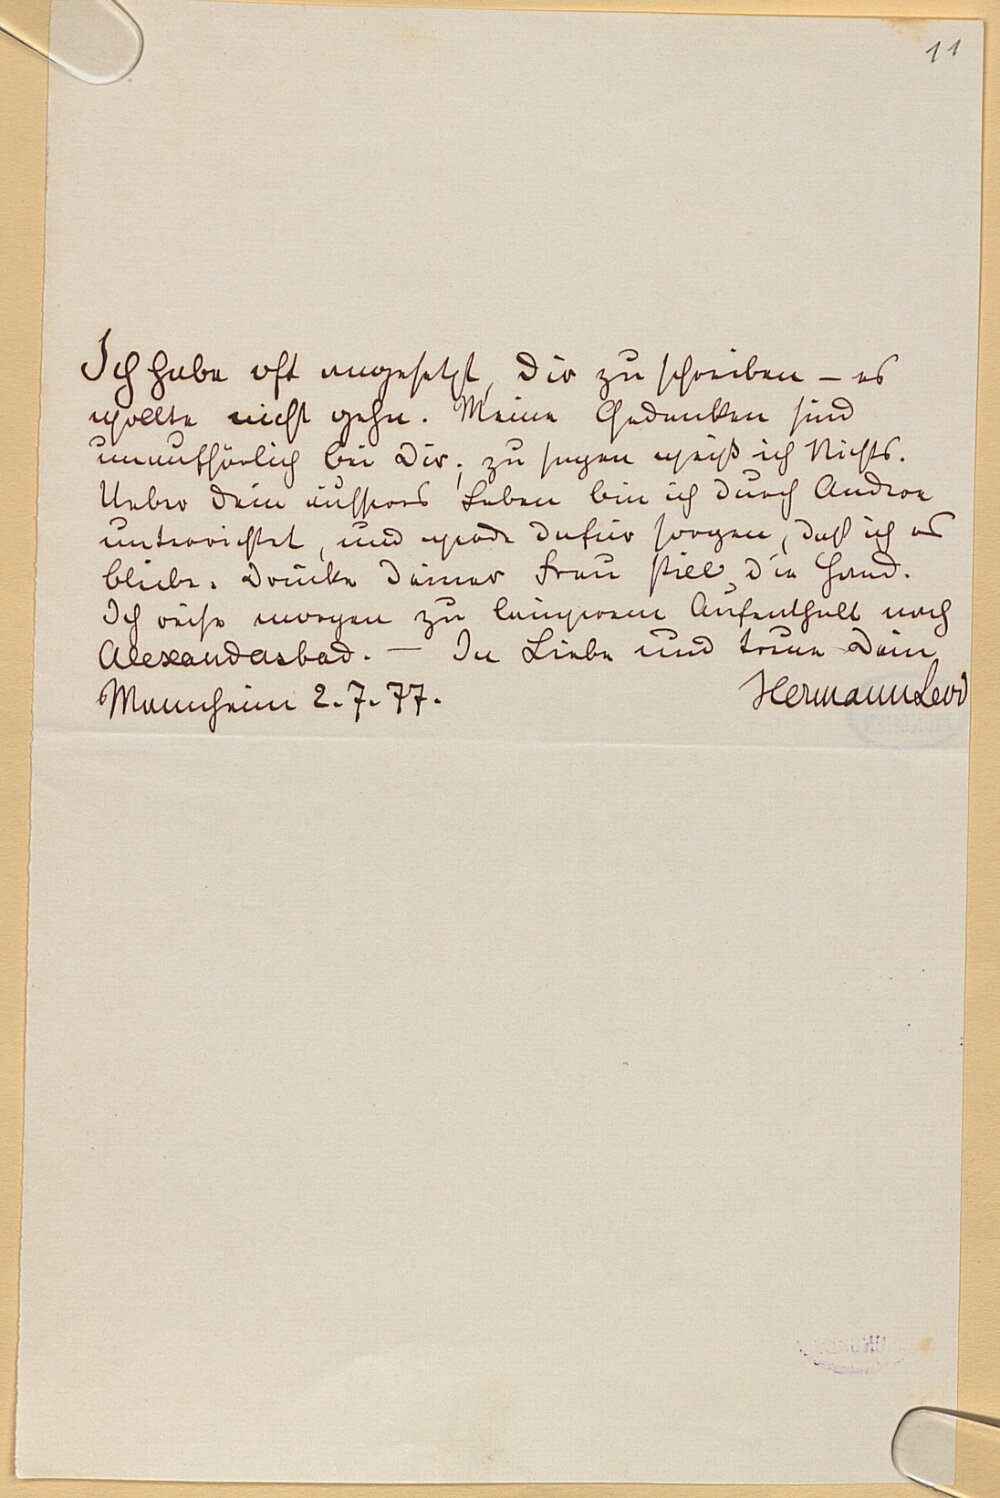 11
Ich habe oft angesetzt, Dir zu schreiben – es
wollte nicht gehn. Meine Gedanken sind
unaufhörlich bei Dir; zu sagen weiß ich Nichts.
Ueber Dein äusseres Leben bin ich durch Andere
unterrichtet, und werde dafür sorgen, daß ich es
bleibe. Drücke Deiner Frau still die Hand.
Ich reise morgen zu längerem Aufenthalt nach
Alexandersbad. — In Liebe und treue Dein
Mannheim 2.7.77. Hermann Levi